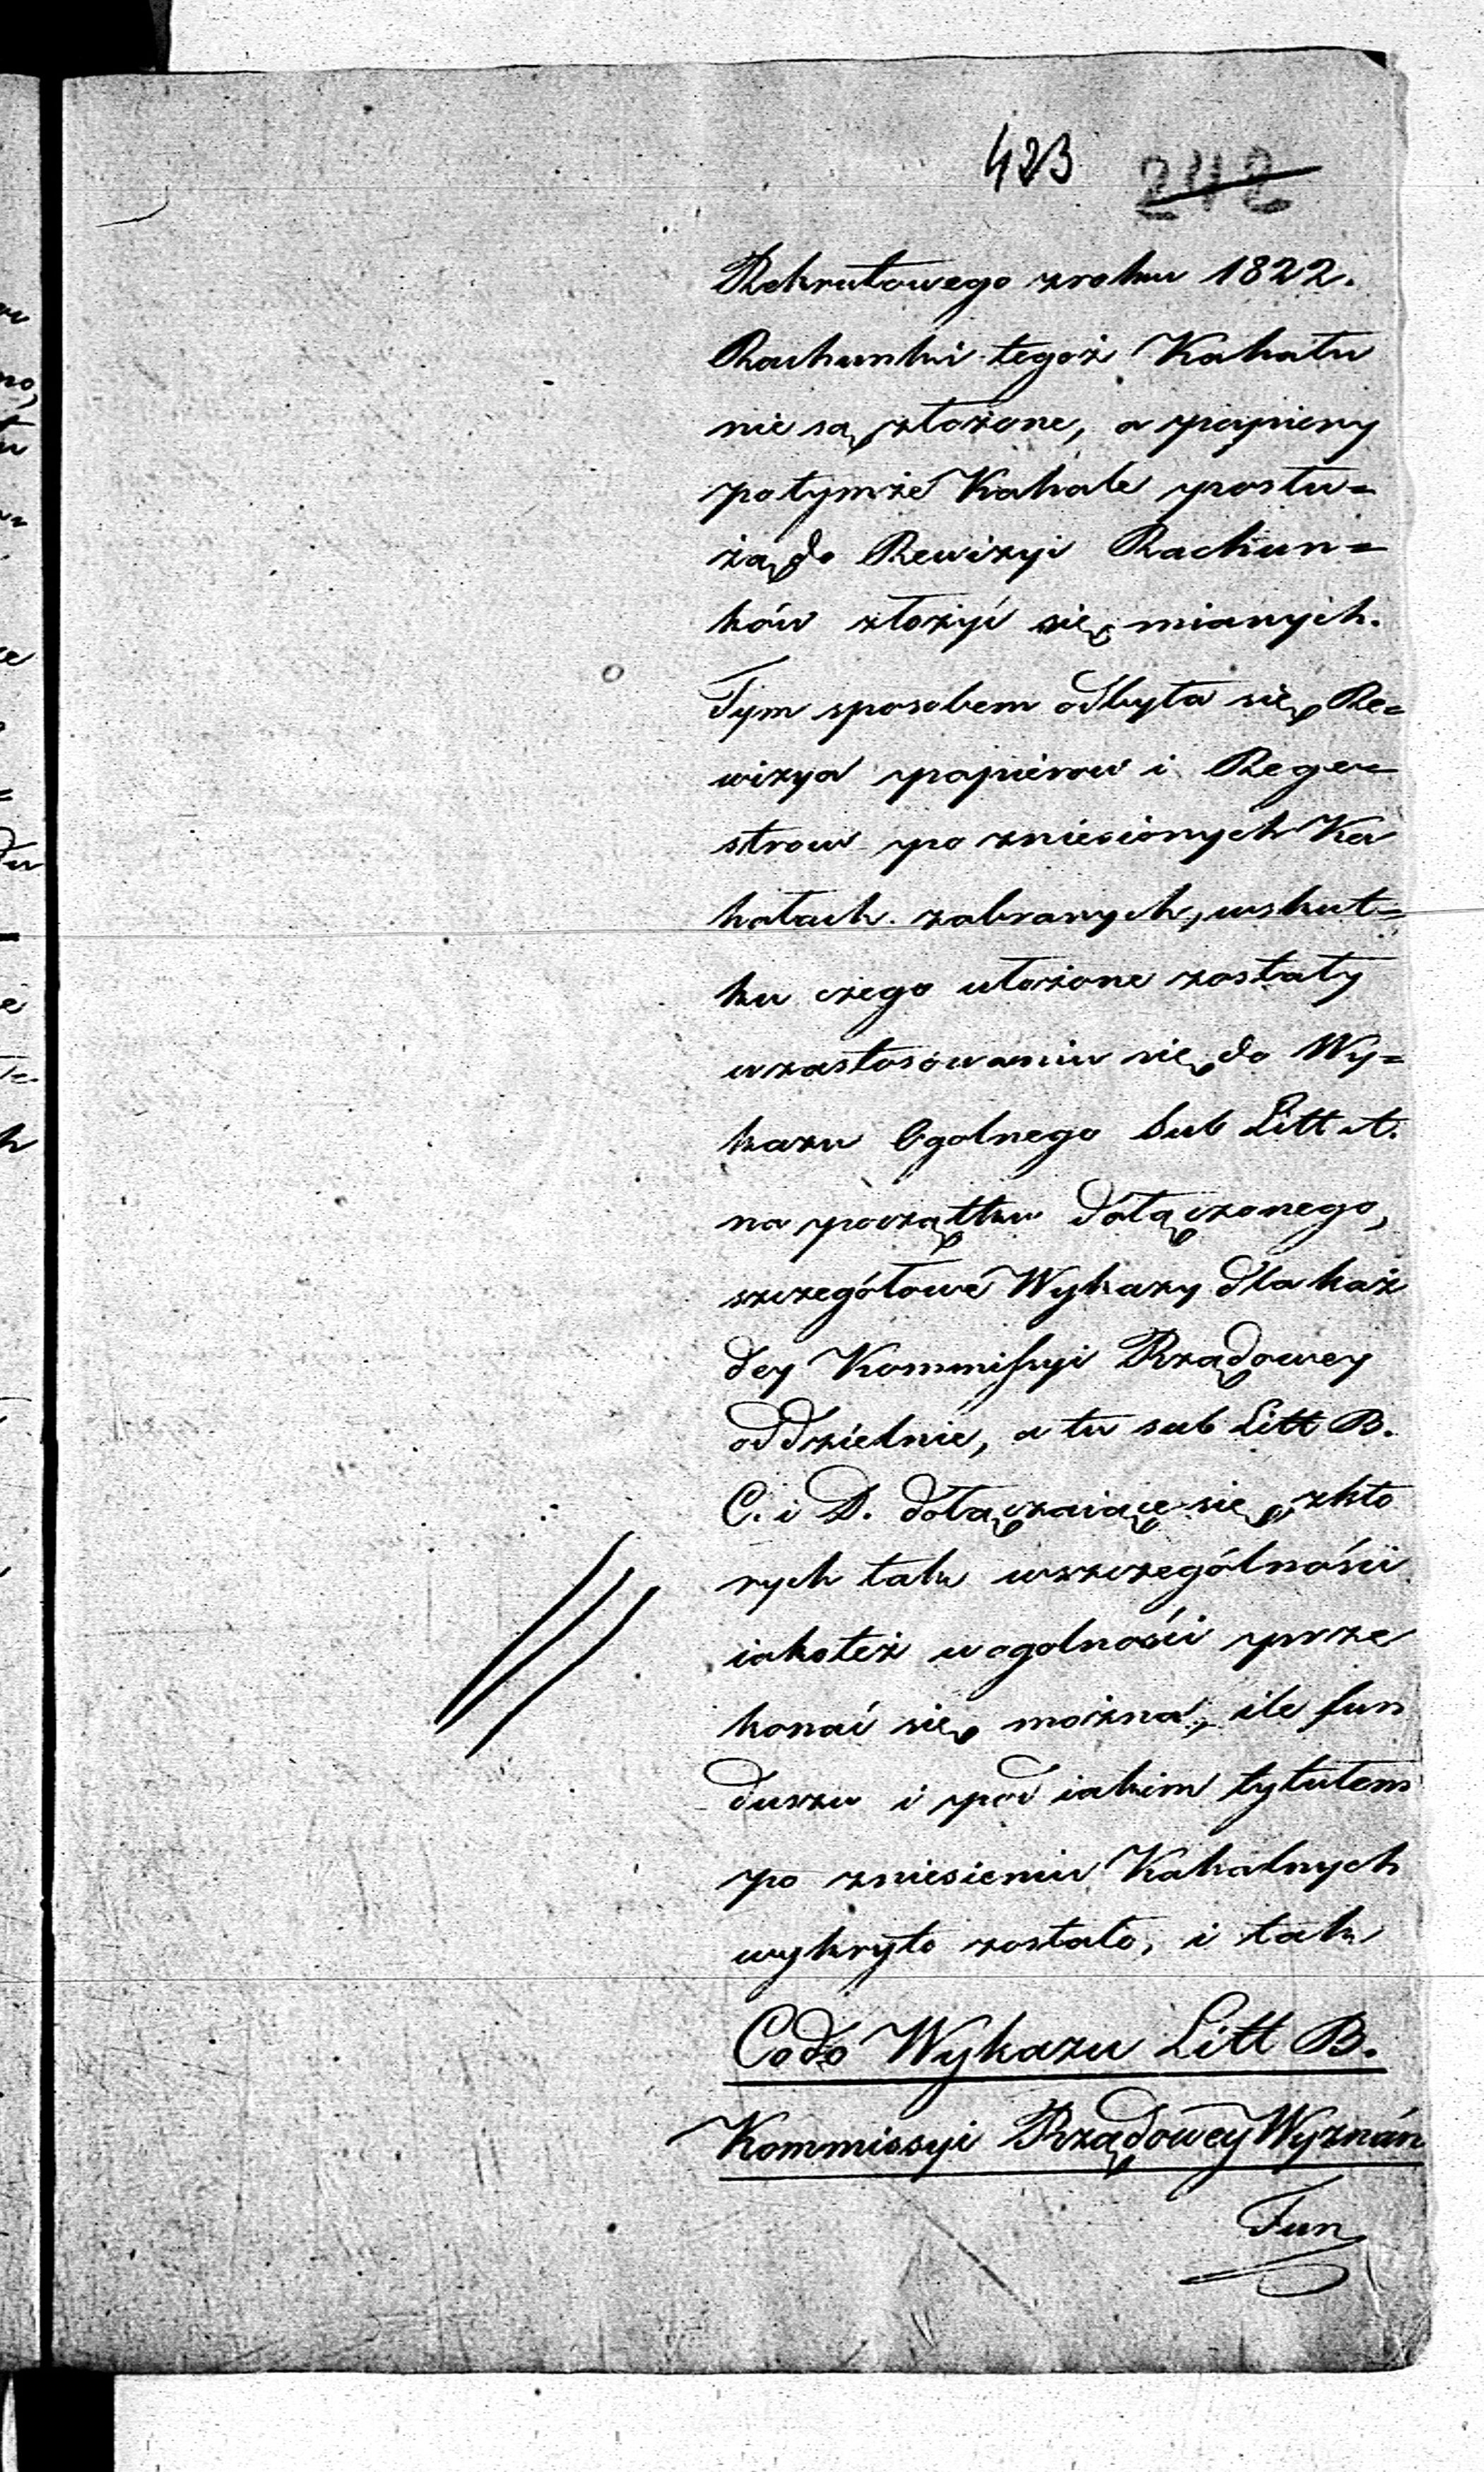 423 242
Rekrutowego z roku 1822.
Rachunki tegoż Kahału
nie są złożone, a papiery
po tymże Kahale posłu=
żą do Rewizyi Rachun=
ków złożyć się mianych.
Tym sposobem odbyta się Re=
wizya papierow i Rege=
strow po zniesionych Ka
hałach zabranych, wskut=
ku czego ułożone zostały
w zastosowaniu się do Wy=
kazu Ogolnego Sub Litt A.
na początku dołączonego,
szczegółowe Wykazy dla każ
dey Kommissyi Rządowey
oddzielnie, a tu sub Litt B.
C. i D. dołączaiące się, z kto
rych tak w szczególności
iakoteż w ogolności prze
konać się można, ile fun
duszu i pod iakim tytułem
po zniesieniu Kahalnych
wykryto zostało, i tak
Co do Wykazu Litt B.
Kommissyi Rządowey Wyznán
Fun